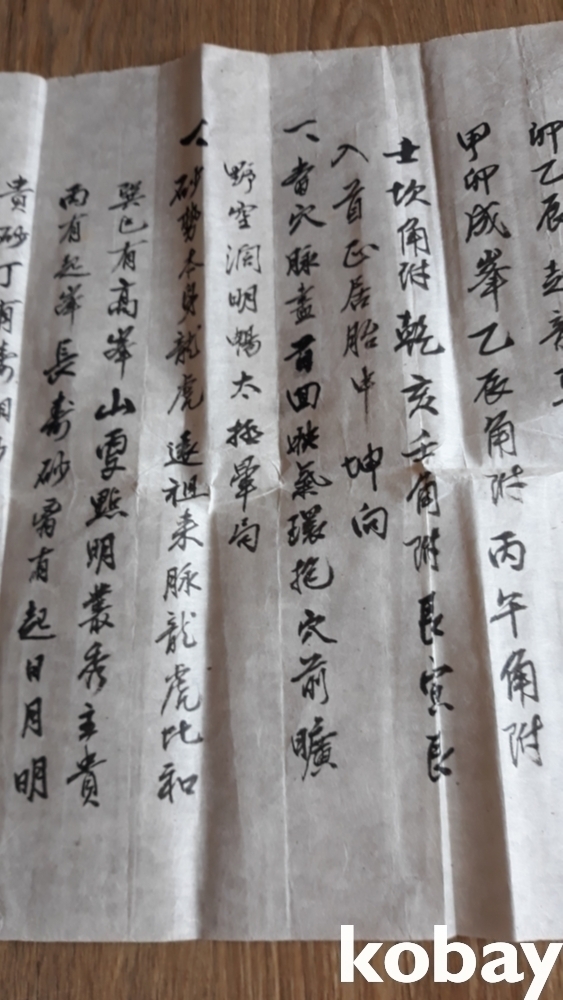 卯乙辰
甲卯成峯乙辰角附丙午角附
壬坎角附乾亥壬角附艮寅艮
入首正居胎中坤向
一 看穴脉盡首回映氣環抱穴前曠
野空洞明暢太極暈局
一 砂勢本身龍虎遠祖来脉龍虎比和
巽巳有高峯山雯點明叢秀主貴
丙有起峯長壽砂酉有起日月明
貴砂丁有壽
kobay